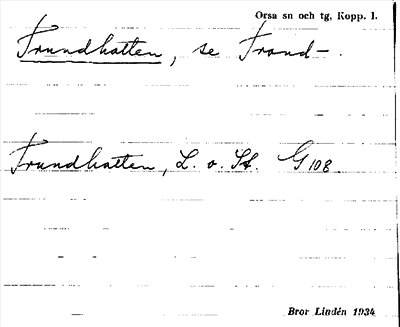 Orsa sn och tg, Kopp. l.
Trundhatten, se Trond-.
Trundhatten, L. o. St. G 108.
Bror Lindén 1934